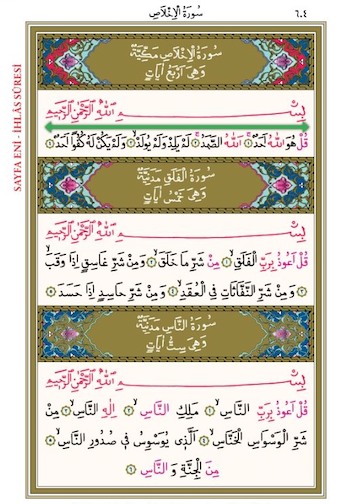 سُورَةُ الْاِخْلَاصِ
٦٠٤
SAYFA ENİ - İHLÂS SÛRESİ
سُورَةُ الْاِخْلَاصِ مَكِّيَّةٌ
وَهِيَ اَرْبَعُ اٰيَاتٍ
بِسْمِ اللّٰهِ الرَّحْمٰنِ الرَّحِيمِ
قُلْ هُوَ اللّٰهُ اَحَدٌ ﴿١﴾ اَللّٰهُ الصَّمَدُ ﴿٢﴾ لَمْ يَلِدْ وَلَمْ يُولَدْ ﴿٣﴾ وَلَمْ يَكُنْ لَهُ كُفُوًا اَحَدٌ ﴿٤﴾
سُورَةُ الْفَلَقِ مَدَنِيَّةٌ
وَهِيَ خَمْسُ اٰيَاتٍ
بِسْمِ اللّٰهِ الرَّحْمٰنِ الرَّحِيمِ
قُلْ اَعُوذُ بِرَبِّ الْفَلَقِ ﴿١﴾ مِنْ شَرِّ مَا خَلَقَ ﴿٢﴾ وَمِنْ شَرِّ غَاسِقٍ اِذَا وَقَبَ
﴿٣﴾ وَمِنْ شَرِّ النَّفَّاثَاتِ فِي الْعُقَدِ ﴿٤﴾ وَمِنْ شَرِّ حَاسِدٍ اِذَا حَسَدَ ﴿٥﴾
سُورَةُ النَّاسِ مَدَنِيَّةٌ
وَهِيَ سِتُّ اٰيَاتٍ
بِسْمِ اللّٰهِ الرَّحْمٰنِ الرَّحِيمِ
قُلْ اَعُوذُ بِرَبِّ النَّاسِ ﴿١﴾ مَلِكِ النَّاسِ ﴿٢﴾ اِلٰهِ النَّاسِ ﴿٣﴾ مِنْ
شَرِّ الْوَسْوَاسِ الْخَنَّاسِ ﴿٤﴾ اَلَّذِي يُوَسْوِسُ فِي صُدُورِ النَّاسِ ﴿٥﴾
مِنَ الْجِنَّةِ وَالنَّاسِ ﴿٦﴾